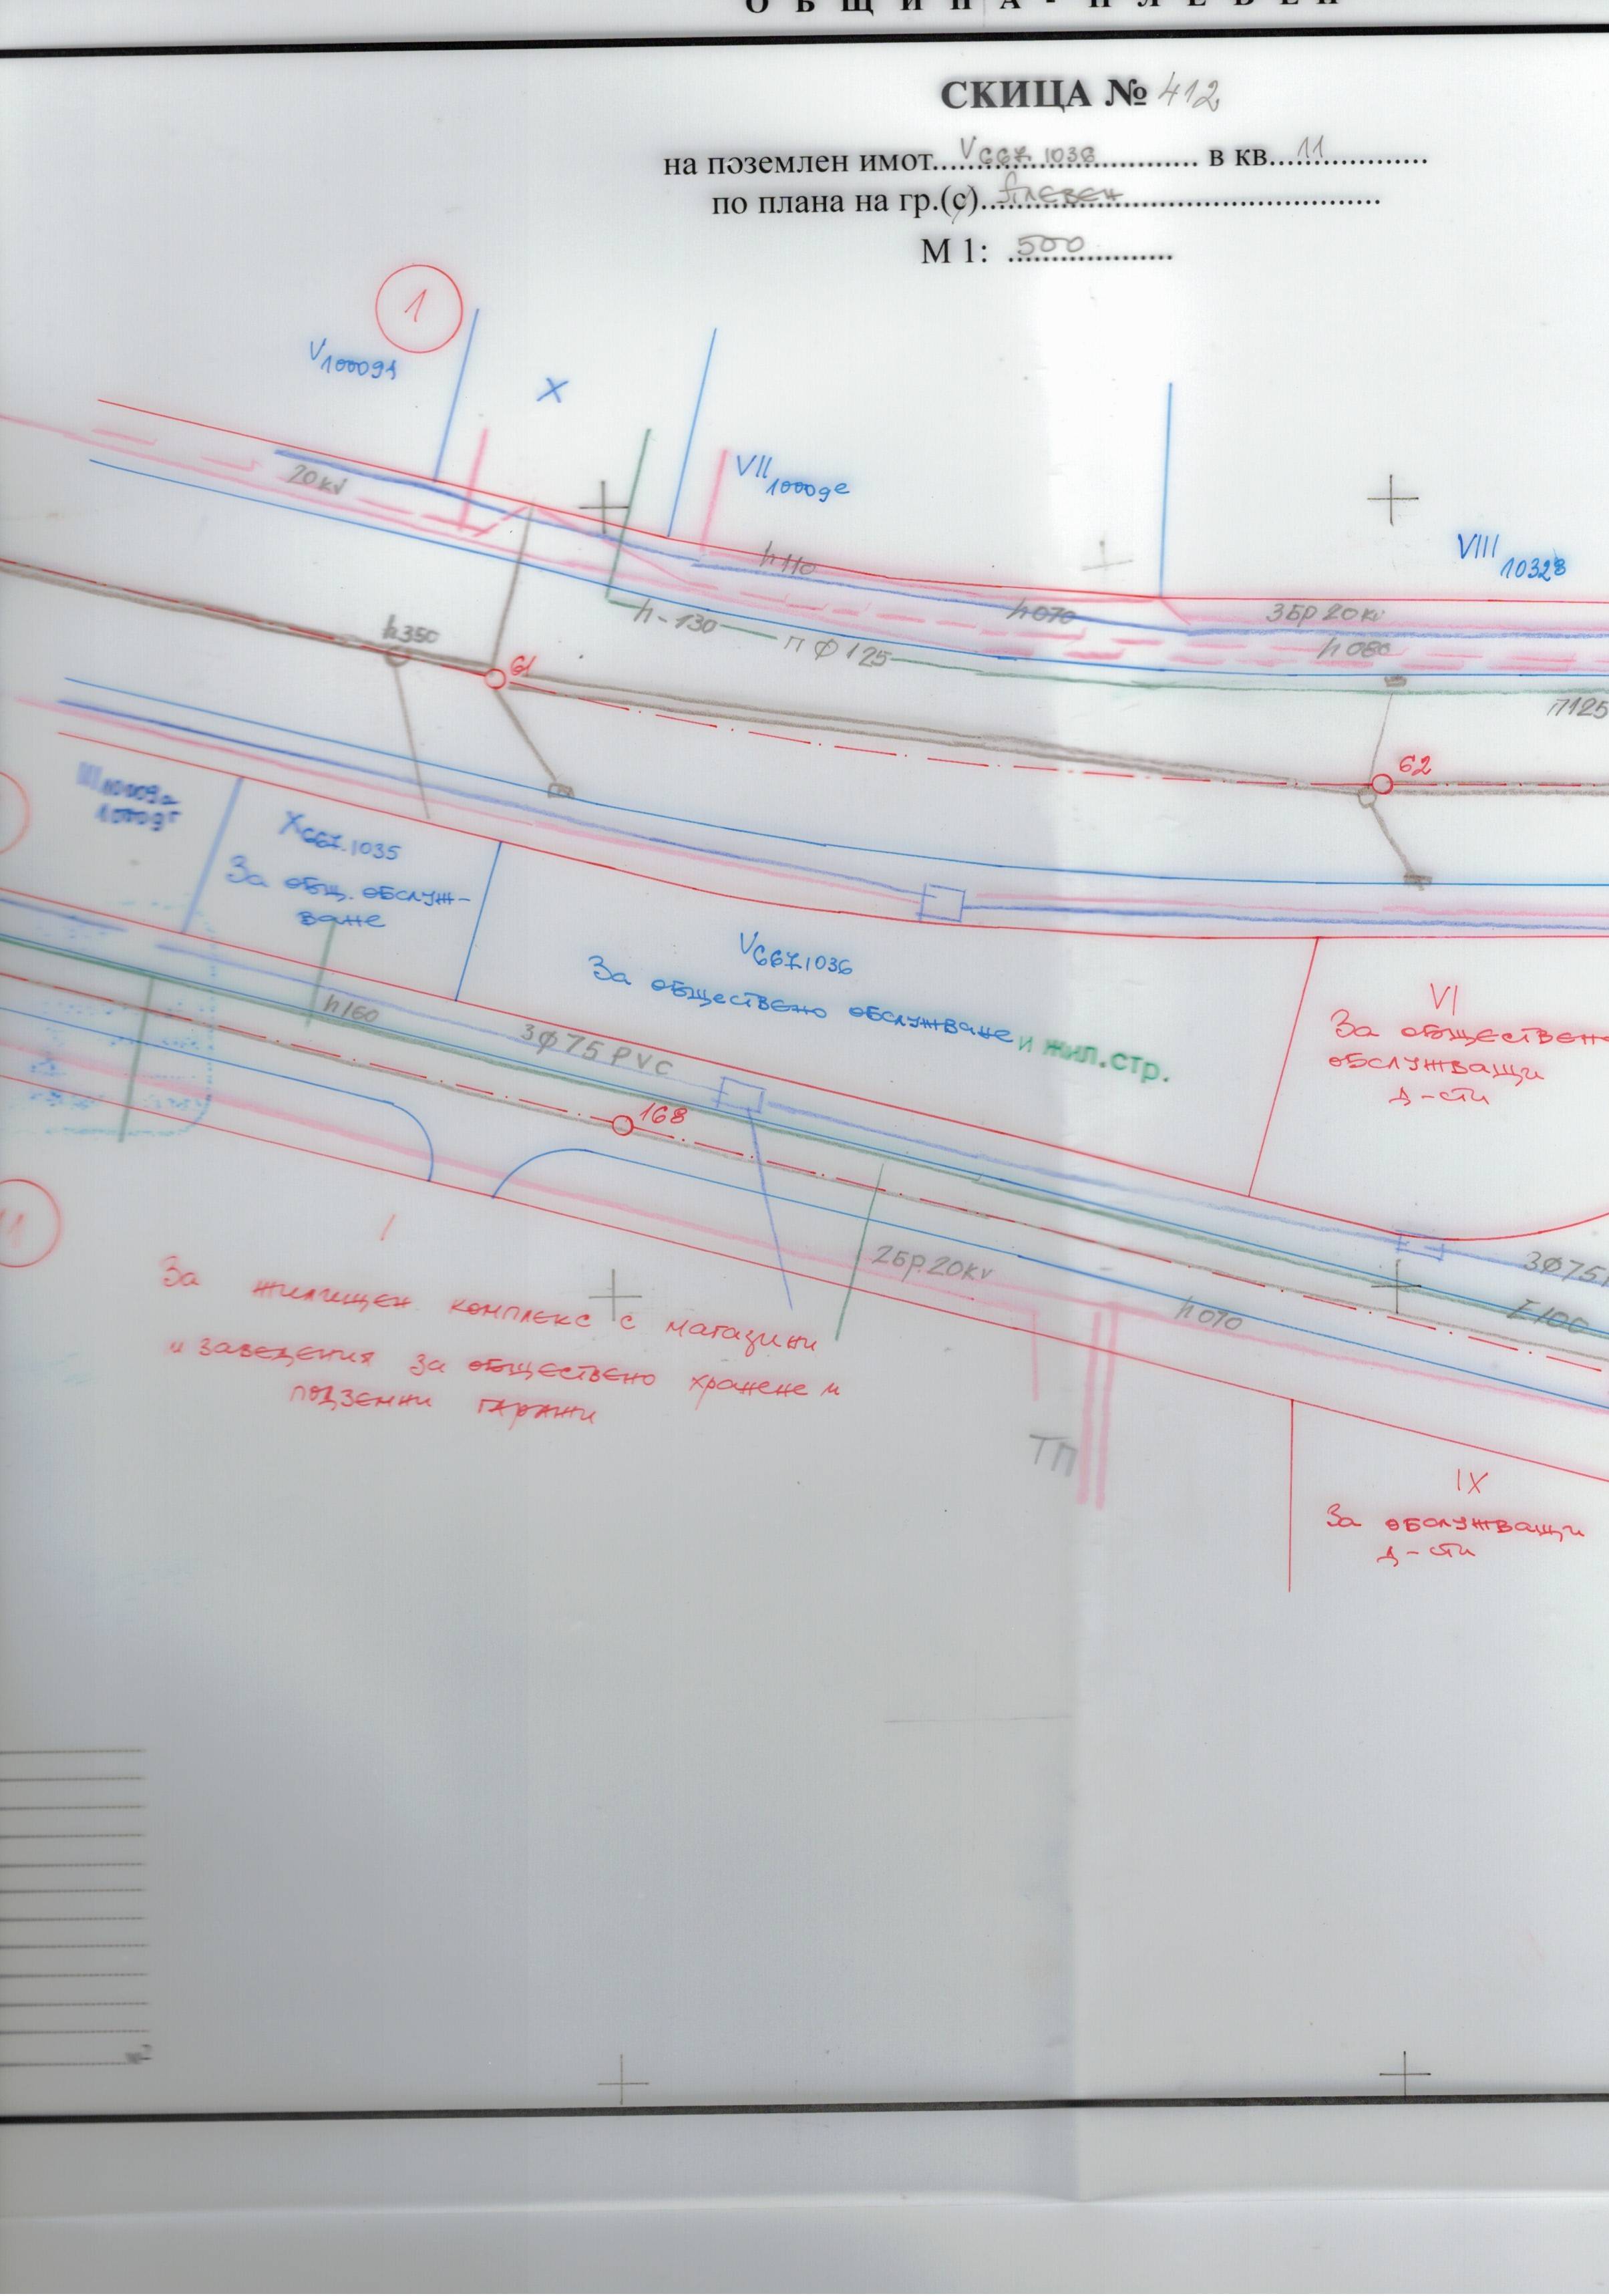 ОБЩИНА - ПЛЕВЕН
СКИЦА № 412
на поземлен имот V 667.1036 в кв. 11
по плана на гр.(с) Плевен
М 1: 500
1
V 10009д
X
VII 10009е
VIII 1032в
20kv
h110
h070
3бр 20kv
h080
h-130
п Ф 125
П125
h350
61
62
III 10009а
10009г
X 667.1035
За общ. обслуж-
ване
V 667.1036
За обществено обслужване и жил.стр.
VI
За обществено
обслужващи
д-сти
h160
3ф75 PVC
168
11
I
2бр.20kv
h070
3Ф75
Е100
За жилищен комплекс с магазини
и заведения за обществено хранене и
подземни гаражи
ТП
IX
За обслужващи
д-сти
м²